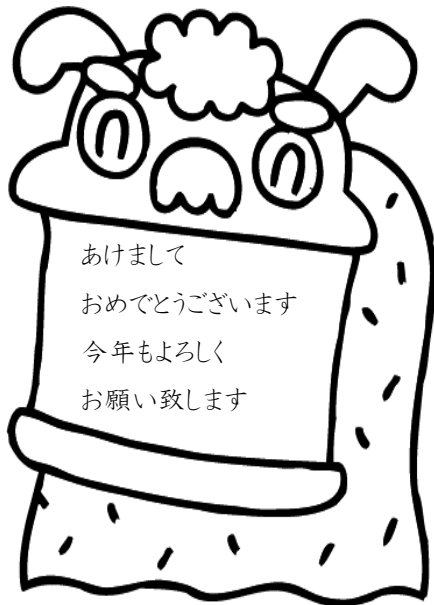 あけまして
おめでとうございます
今年もよろしく
お願い致します